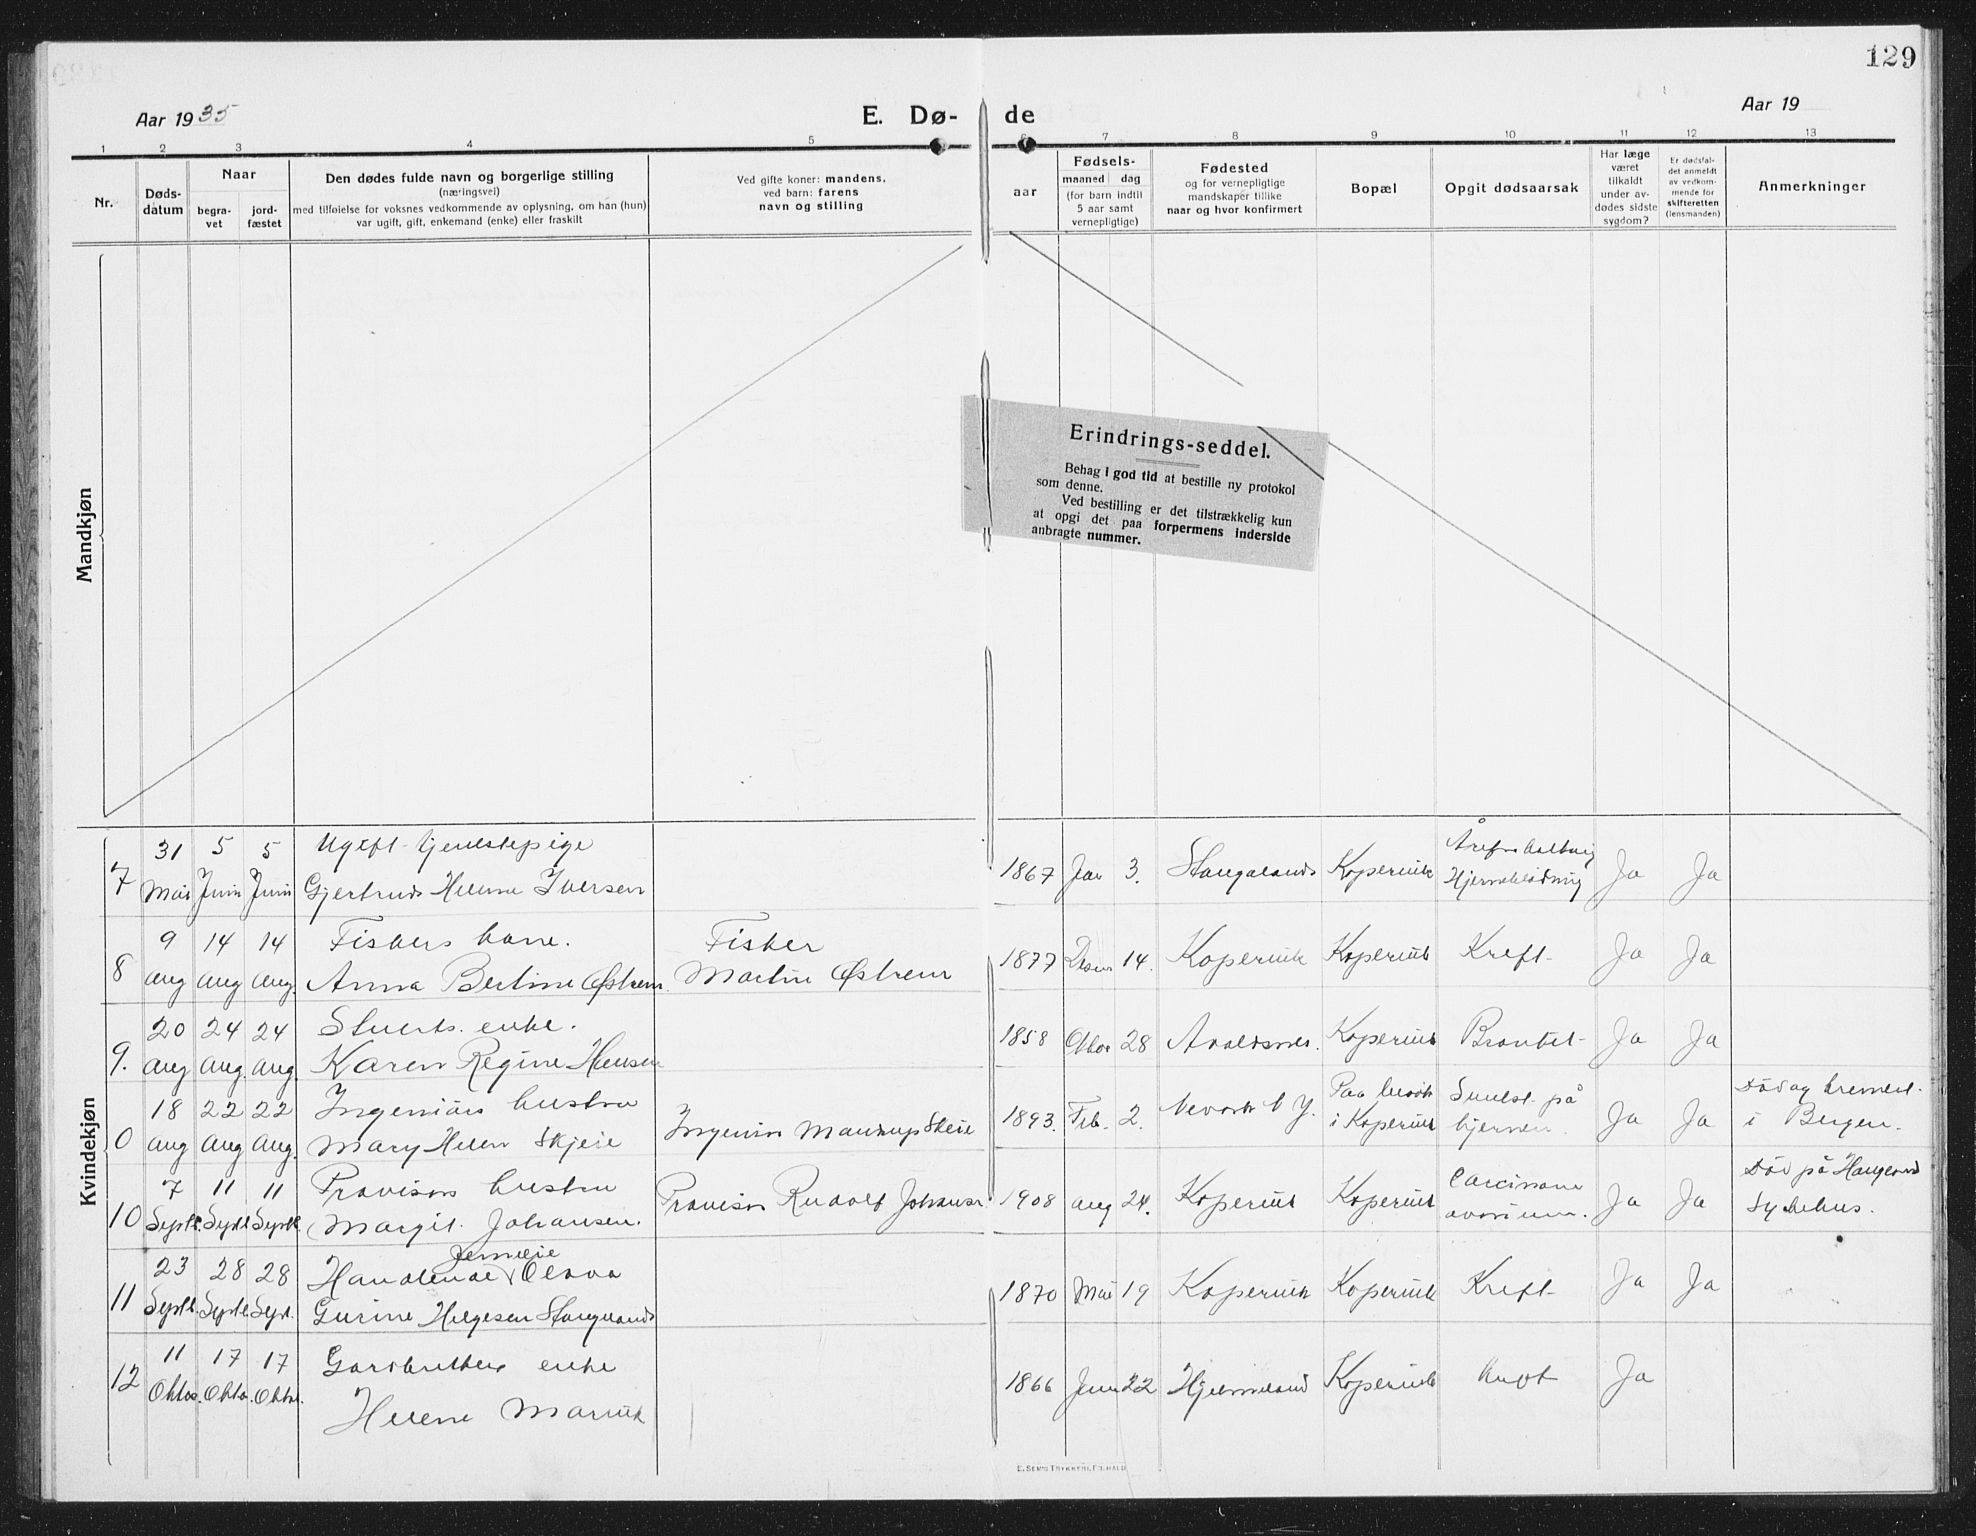 129
Aar 1935
E. Dø-
de
Aar 19
1 2 3 4 5 6 7 8 9 10 11 12 13
Nr.
Døds-
datum
Naar
begra-
vet
jord-
fæstet
Den dødes fulde navn og borgerlige stilling
(næringsvei)
med tilføielse for voksnes vedkommende av oplysning, om han (hun)
var ugift, gift, enkemand (enke) eller fraskilt
Ved gifte koner: mandens,
ved barn: farens
navn og stilling
aar
Fødsels-
maaned dag
(for barn indtil
5 aar samt
vernepligtige)
Fødested
og for vernepligtige
mandskaper tillike
naar og hvor konfirmert
Bopæl
Opgit dødsaarsak
Har læge
været
tilkaldt
under av-
dødes sidste
sygdom?
Er dødsfal-
det anmeldt
av vedkom-
mende for
skifteretten
(lensmanden)
Anmerkninger
Mandkjøn
Erindrings-seddel.
Behag i god tid at bestille ny protokol
som denne.
Ved bestilling er det tilstrækkelig kun
at opgi det paa forpermens inderside
anbragte nummer.
Kvindekjøn
31 5 5 Ugift tjenestepige
7 Mai Juni Juni Gjertrud Helene Iversen 1867 Jan 3. Stangeland Kopervik Hjerneblødning Ja Ja
9 14 14 Fiskers kone. Fisker
8 aug aug aug. Anna Bertine Østrem Martin Østrem 1877 Desem 14. Kopervik Kopervik Kreft Ja Ja
20 24 24 Stuerts enke.
9. aug aug. aug. Karen Regine Hansen 1858 Oktor 28 Avaldsnes. Kopervik Ja Ja
18 22 22 Ingeniørs hustru
0 aug aug aug. Mary Helen Skjeie Ingeniør Skeie 1893. Feb. 2. N Y. Paa besøk
i Kopervik på
hjernen. Ja Ja Død og kremert
i Bergen.
7 11 11 Provisors hustru
10 Septb. Septb. Septb. Margit Johansen. Provisor Rudolf Johansen 1908 aug 24. Kopervik Kopervik Carcinoma
Ja Ja Død på Haugesund
Sykehus.
23 28 28 Handlende Olava
11 Septb. Septb. Sept. Gurine Helgesen Stangeland 1870 Mai 19 Kopervik Kopervik Kreft Ja Ja
11 17 17 Gardbrukers enke
12 Oktor. Oktor. Oktor. Helene 1866 Juni 22 Hjelmeland Kopervik Ja